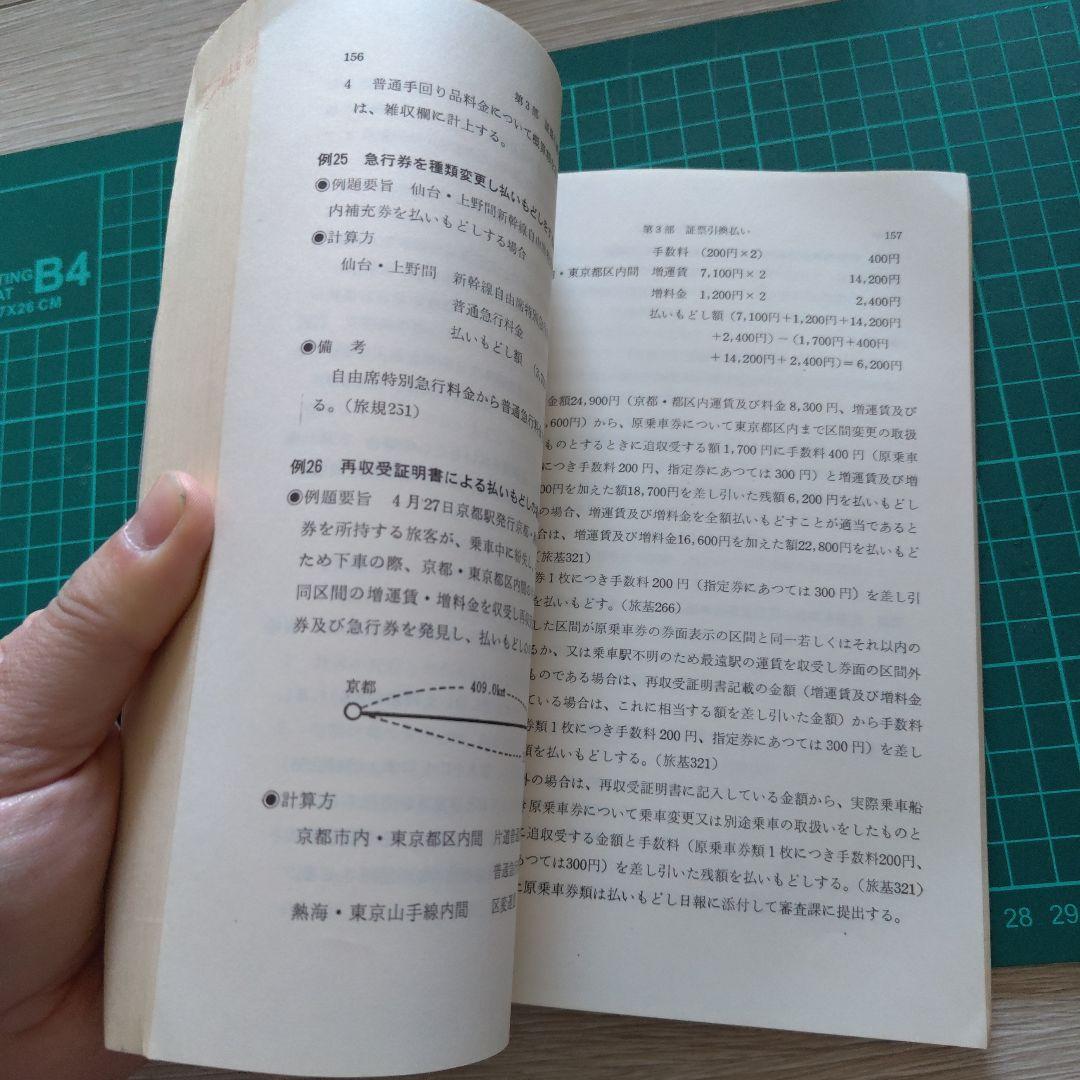 156
4 普通手回り品料金について
は、雑収欄に計上する。
例25 急行券を種類変更し払いもどしを
●例題要旨 仙台・上野間新幹線自由
内補充券を払いもどしする場合
●計算方
仙台・上野間 新幹線自由席特別
普通急行料金
払いもどし額
●備 考
自由席特別急行料金から普通急行料
る。(旅規251)
例26 再収受証明書による払いもどし
●例題要旨 4月27日京都駅発行京都・
券を所持する旅客が、乗車中に紛失し、
ため下車の際、京都・東京都区内間の
同区間の増運賃・増料金を収受し再
券及び急行券を発見し、払いもどしの
京都
409.0km
●計算方
京都市内・東京都区内間 片道普通
普通急
熱海・東京山手線内間 区変運
第3部 証票引換払い 157
手数料 (200円×2) 400円
・東京都区内間 増運賃 7,100円×2 14,200円
増料金 1,200円×2 2,400円
払いもどし額 (7,100円+1,200円+14,200円
+2,400円)-(1,700円+400円
+14,200円+2,400円)=6,200円
金額24,900円(京都・都区内運賃及び料金8,300円、増運賃及び
,600円)から、原乗車券について東京都区内まで区間変更の取扱
ものとするときに追収受する額1,700円に手数料400円(原乗車
につき手数料200円、指定券にあつては300円)と増運賃及び増
00円を加えた額18,700円を差し引いた残額6,200円を払いもどし
の場合、増運賃及び増料金を全額払いもどすことが適当であると
合は、増運賃及び増料金16,600円を加えた額22,800円を払いもど
(旅基321)
券1枚につき手数料200円(指定券にあつては300円)を差し引
を払いもどす。(旅基266)
した区間が原乗車券の券面表示の区間と同一若しくはそれ以内の
るか、又は乗車駅不明のため最遠駅の運賃を収受し券面の区間外
ものである場合は、再収受証明書記載の金額(増運賃及び増料金
ている場合は、これに相当する額を差し引いた金額)から手数料
券類1枚につき手数料200円、指定券にあつては300円)を差し
額を払いもどしする。(旅基321)
外の場合は、再収受証明書に記入している金額から、実際乗車船
原乗車券について乗車変更又は別途乗車の取扱いをしたものと
追収受する金額と手数料(原乗車券類1枚につき手数料200円、
あつては300円)を差し引いた残額を払いもどしする。(旅基321)
原乗車券類は払いもどし日報に添付して審査課に提出する。
B4
28 29